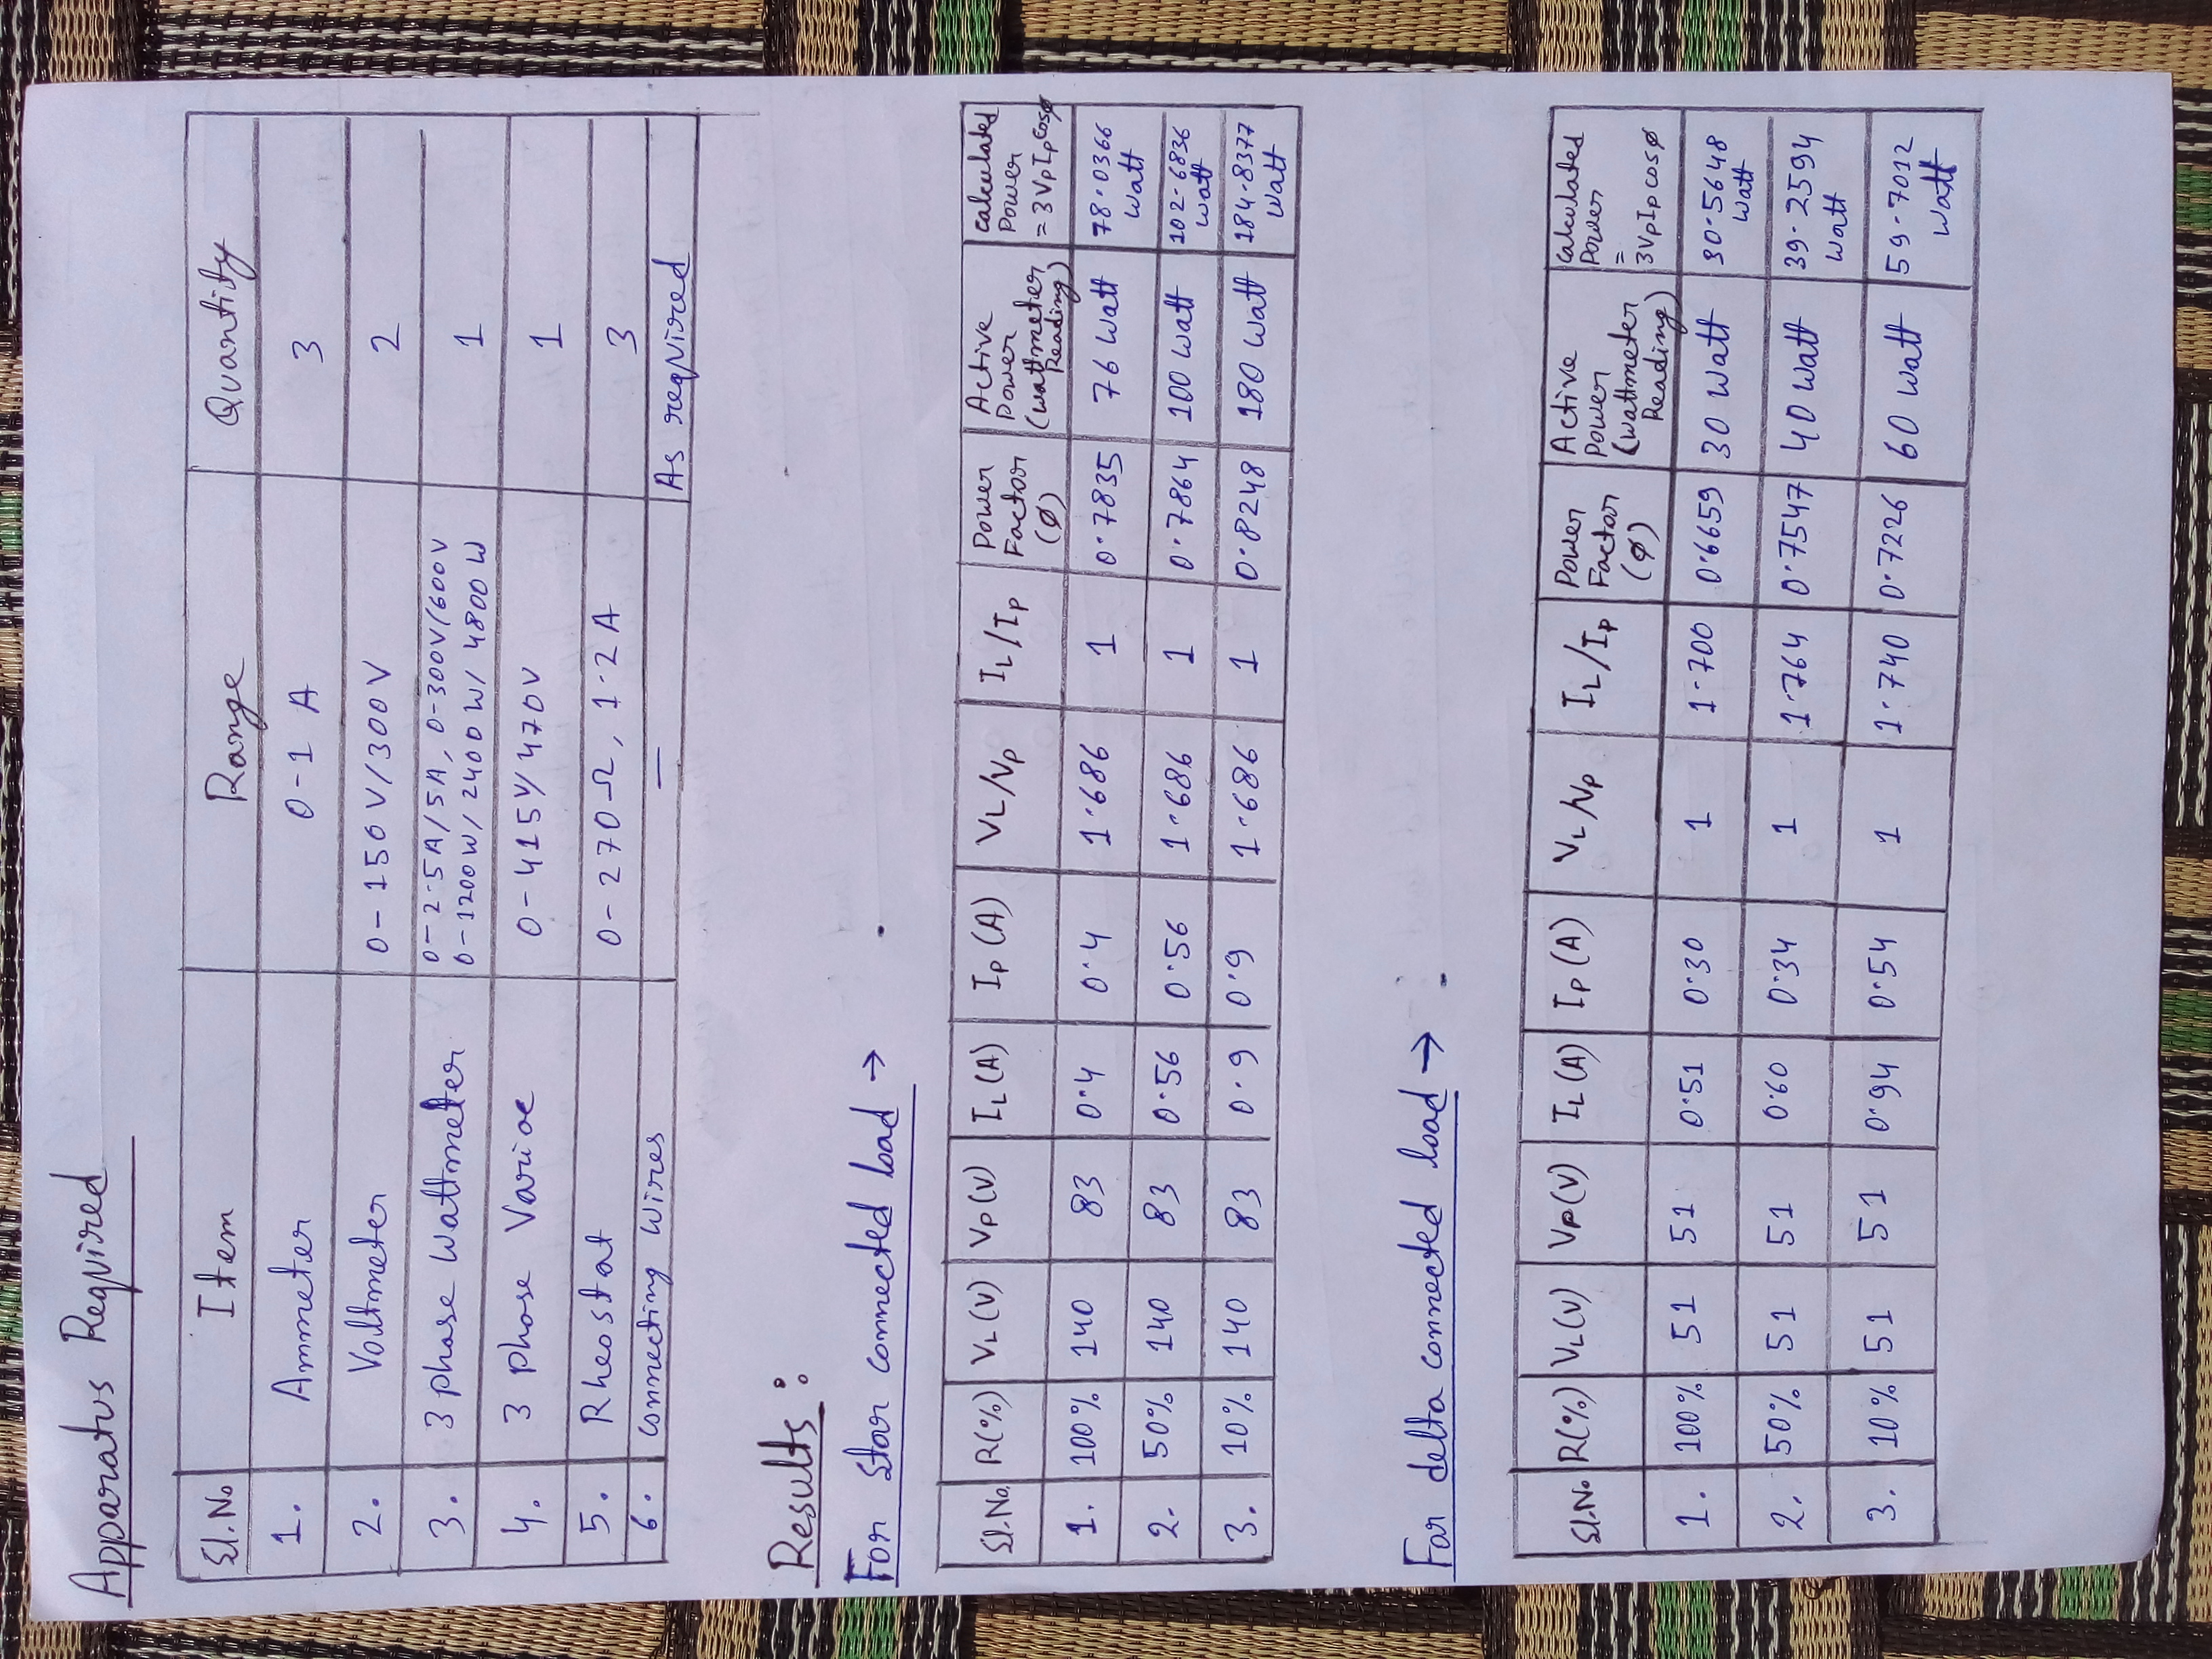 Apparatus Required
Sl.No Item Range Quantity
1. Ammeter 0-1 A 3
2. Voltmeter 0-150V/300V 2
3. 3 phase Wattmeter 0-2.5A/5A, 0-300V/600V
0-1200W/2400W/4800W 1
4. 3 phase Variac 0-415V/470V 1
5. Rheostat 0-270Ω, 1.2A 3
6. connecting wires — As required
Results:
For star connected load →
Sl.No. R(%) VL(V) VP(V) IL(A) IP(A) VL/VP IL/IP Power Factor (Ø) Active Power (Wattmeter Reading) calculated Power =3VPIPcosØ
1. 100% 140 83 0.4 0.4 1.686 1 0.7835 76 Watt 78.0366 Watt
2. 50% 140 83 0.56 0.56 1.686 1 0.7864 100 Watt 102.6836 Watt
3. 10% 140 83 0.9 0.9 1.686 1 0.8248 180 Watt 184.8377 Watt
For delta connected load →
Sl.No R(%) VL(V) VP(V) IL(A) IP(A) VL/VP IL/IP Power Factor (Ø) Active Power (Wattmeter Reading) calculated Power = 3VPIPcosØ
1. 100% 51 51 0.51 0.30 1 1.700 0.6659 30 Watt 30.5648 Watt
2. 50% 51 51 0.60 0.34 1 1.764 0.7547 40 Watt 39.2594 Watt
3. 10% 51 51 0.94 0.54 1 1.740 0.7226 60 Watt 59.7012 Watt